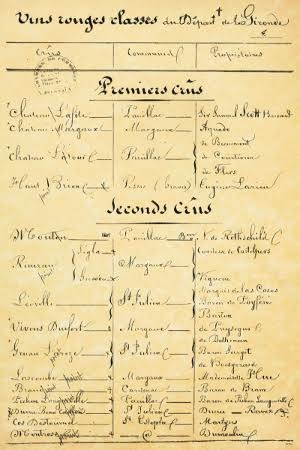 Vins rouges classés du Départ^t de la Gironde
Crûs Communes Propriétaires
Premiers Crûs
Chateau Lafite Pauillac Sir Samuel Scott
Chateau Margaux Margaux Aguado
de Beaumont
Chateau Latour Pauillac de Courtivron
de Flers
Haut Brion Pessac (Graves) Eugène Larrieu
Seconds Crûs
Mouton Pauillac Bon N. de Rothschild
Rauzan Ségla Comtesse de Castelpers
Gassies Margaux Viguerie
Marquis de Las Cases
Léoville St Julien Baron de Poyféré
Barton
Vivens Durfort Margaux de Puységur
de Bethmann
Gruau Laroze St Julien Baron Sarget
de Boisgerard
Lascombe Margaux Mademoiselle Hue
Brane Cantenac Baron de Brane
Pichon Longueville Pauillac Baron de Pichon Longueville
Ducru Beau Caillou St Julien Ducru Ravez
Cos Destournel St Estèphe Martyns
Montrose Dumoulin